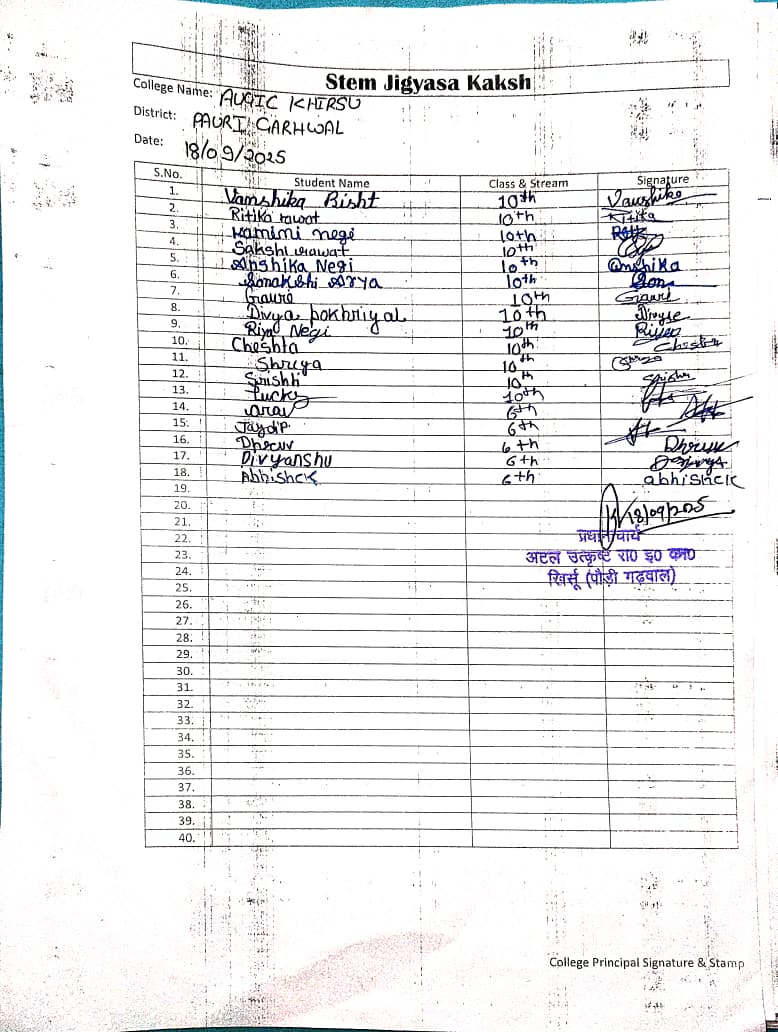 Stem Jigyasa Kaksh
College Name: AUGIC KHIRSU
District: PAURI GARHWAL
Date: 18/09/2025
S.No. Student Name Class & Stream Signature
1. Vanshika Bisht 10th Vanshika
2. Ritika rawat 10th Ritika
3. Kamini negi 10th
4. Sakshi rawat 10th
5. Anshika Negi 10th @nshika
6. Sonakshi Arya 10th Son
7. Gauri 10th Gauri
8. Divya pokhriyal 10th Divya
9. Riya Negi 10th Riya
10. Cheshta 10th Cheshta
11. Shreya 10th
12. Srishti 10th
13. Lucky 10th
14. arav 6th
15. Jaydip 6th
16. Dhruv 6th Dhruv
17. Divyanshu 6th
18. Abhishek 6th abhishek
19.
20. 18/09/2025
21.
22. प्रधानाचार्य
23. अटल उत्कृष्ट रा0 इ0 का0
24. खिर्सू (पौड़ी गढ़वाल)
25.
26.
27.
28.
29.
30.
31.
32.
33.
34.
35.
36.
37.
38.
39.
40.
College Principal Signature & Stamp